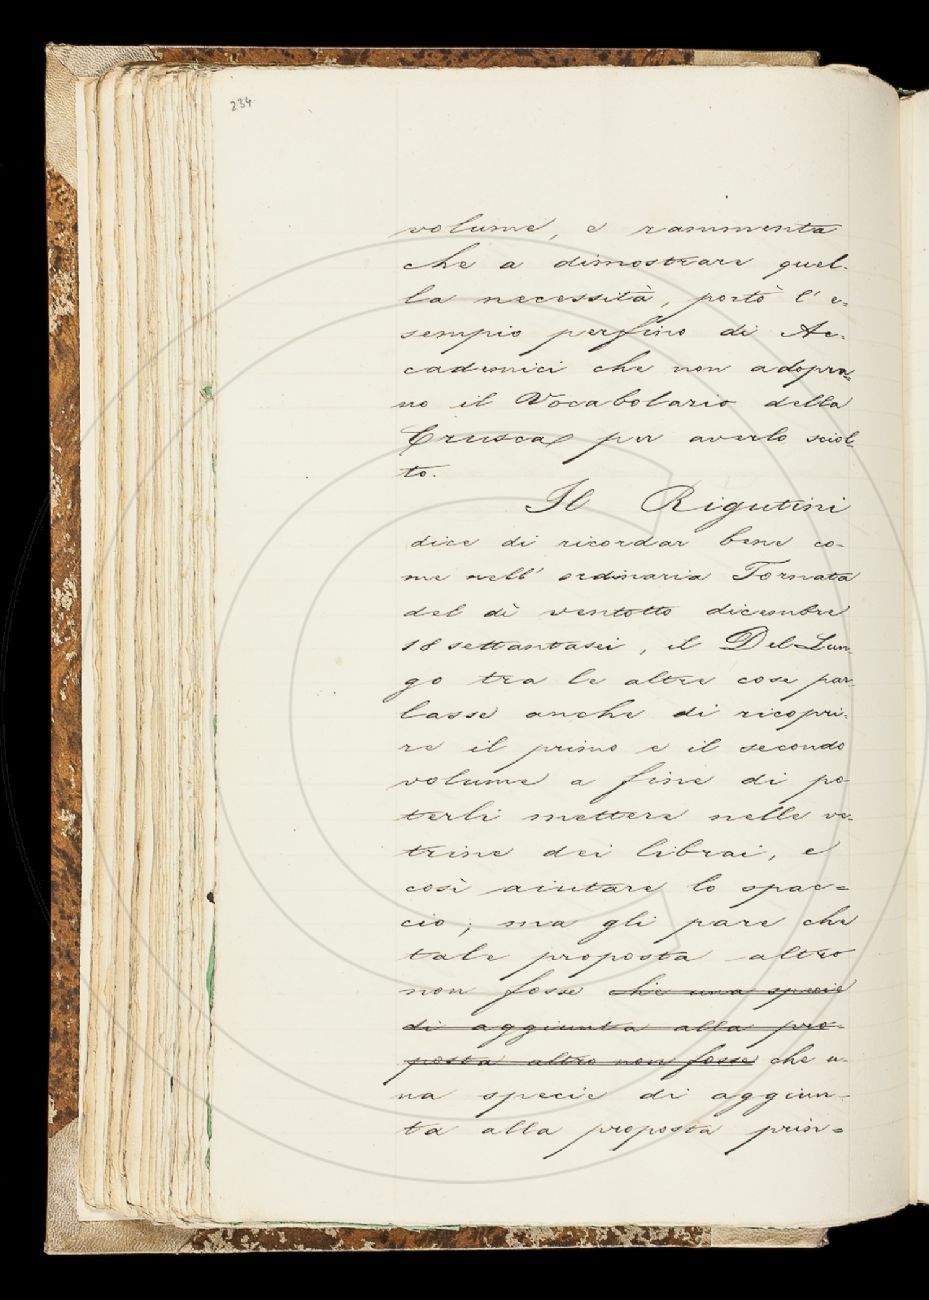 234
volume, e rammenta
che a dimostrare quel-
la necessità, portò l' e-
sempio perfino di Ac-
cademici che non adopra-
no il Vocabolario della
Crusca per averlo sciol-
to.
Il Rigutini
dice di ricordar bene co-
me nell' ordinaria Tornata
del dì ventotto dicembre
18settantasei, il Del-Lun-
go tra le altre cose par-
lasse anche di ricopri-
re il primo e il secondo
volume a fine di po-
terli mettere nelle ve-
trine dei librai, e
così aiutare lo spac=
cio; ma gli pare che
tale proposta altro
non fosse che una specie
di aggiunta alla pro-
posta altro non fosse che u-
na specie di aggiun-
ta alla proposta prin=